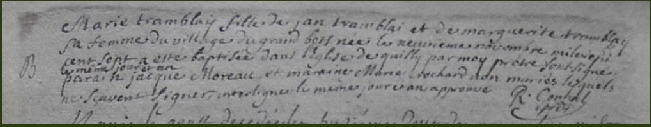 Marie tramblais fille de jan tramblai et de marguerite tramblay
sa femme du village du grand bost née le neuvieme novembre mil sept
cent sept a esté baptisée dans l'Eglise de quilly par moy prêtre soussigné
le même jour et an
B parain jacque Moreau et maraine Marie cochard non mariés lesquels
ne scavent signer, interligne le meme jour et an approuvé